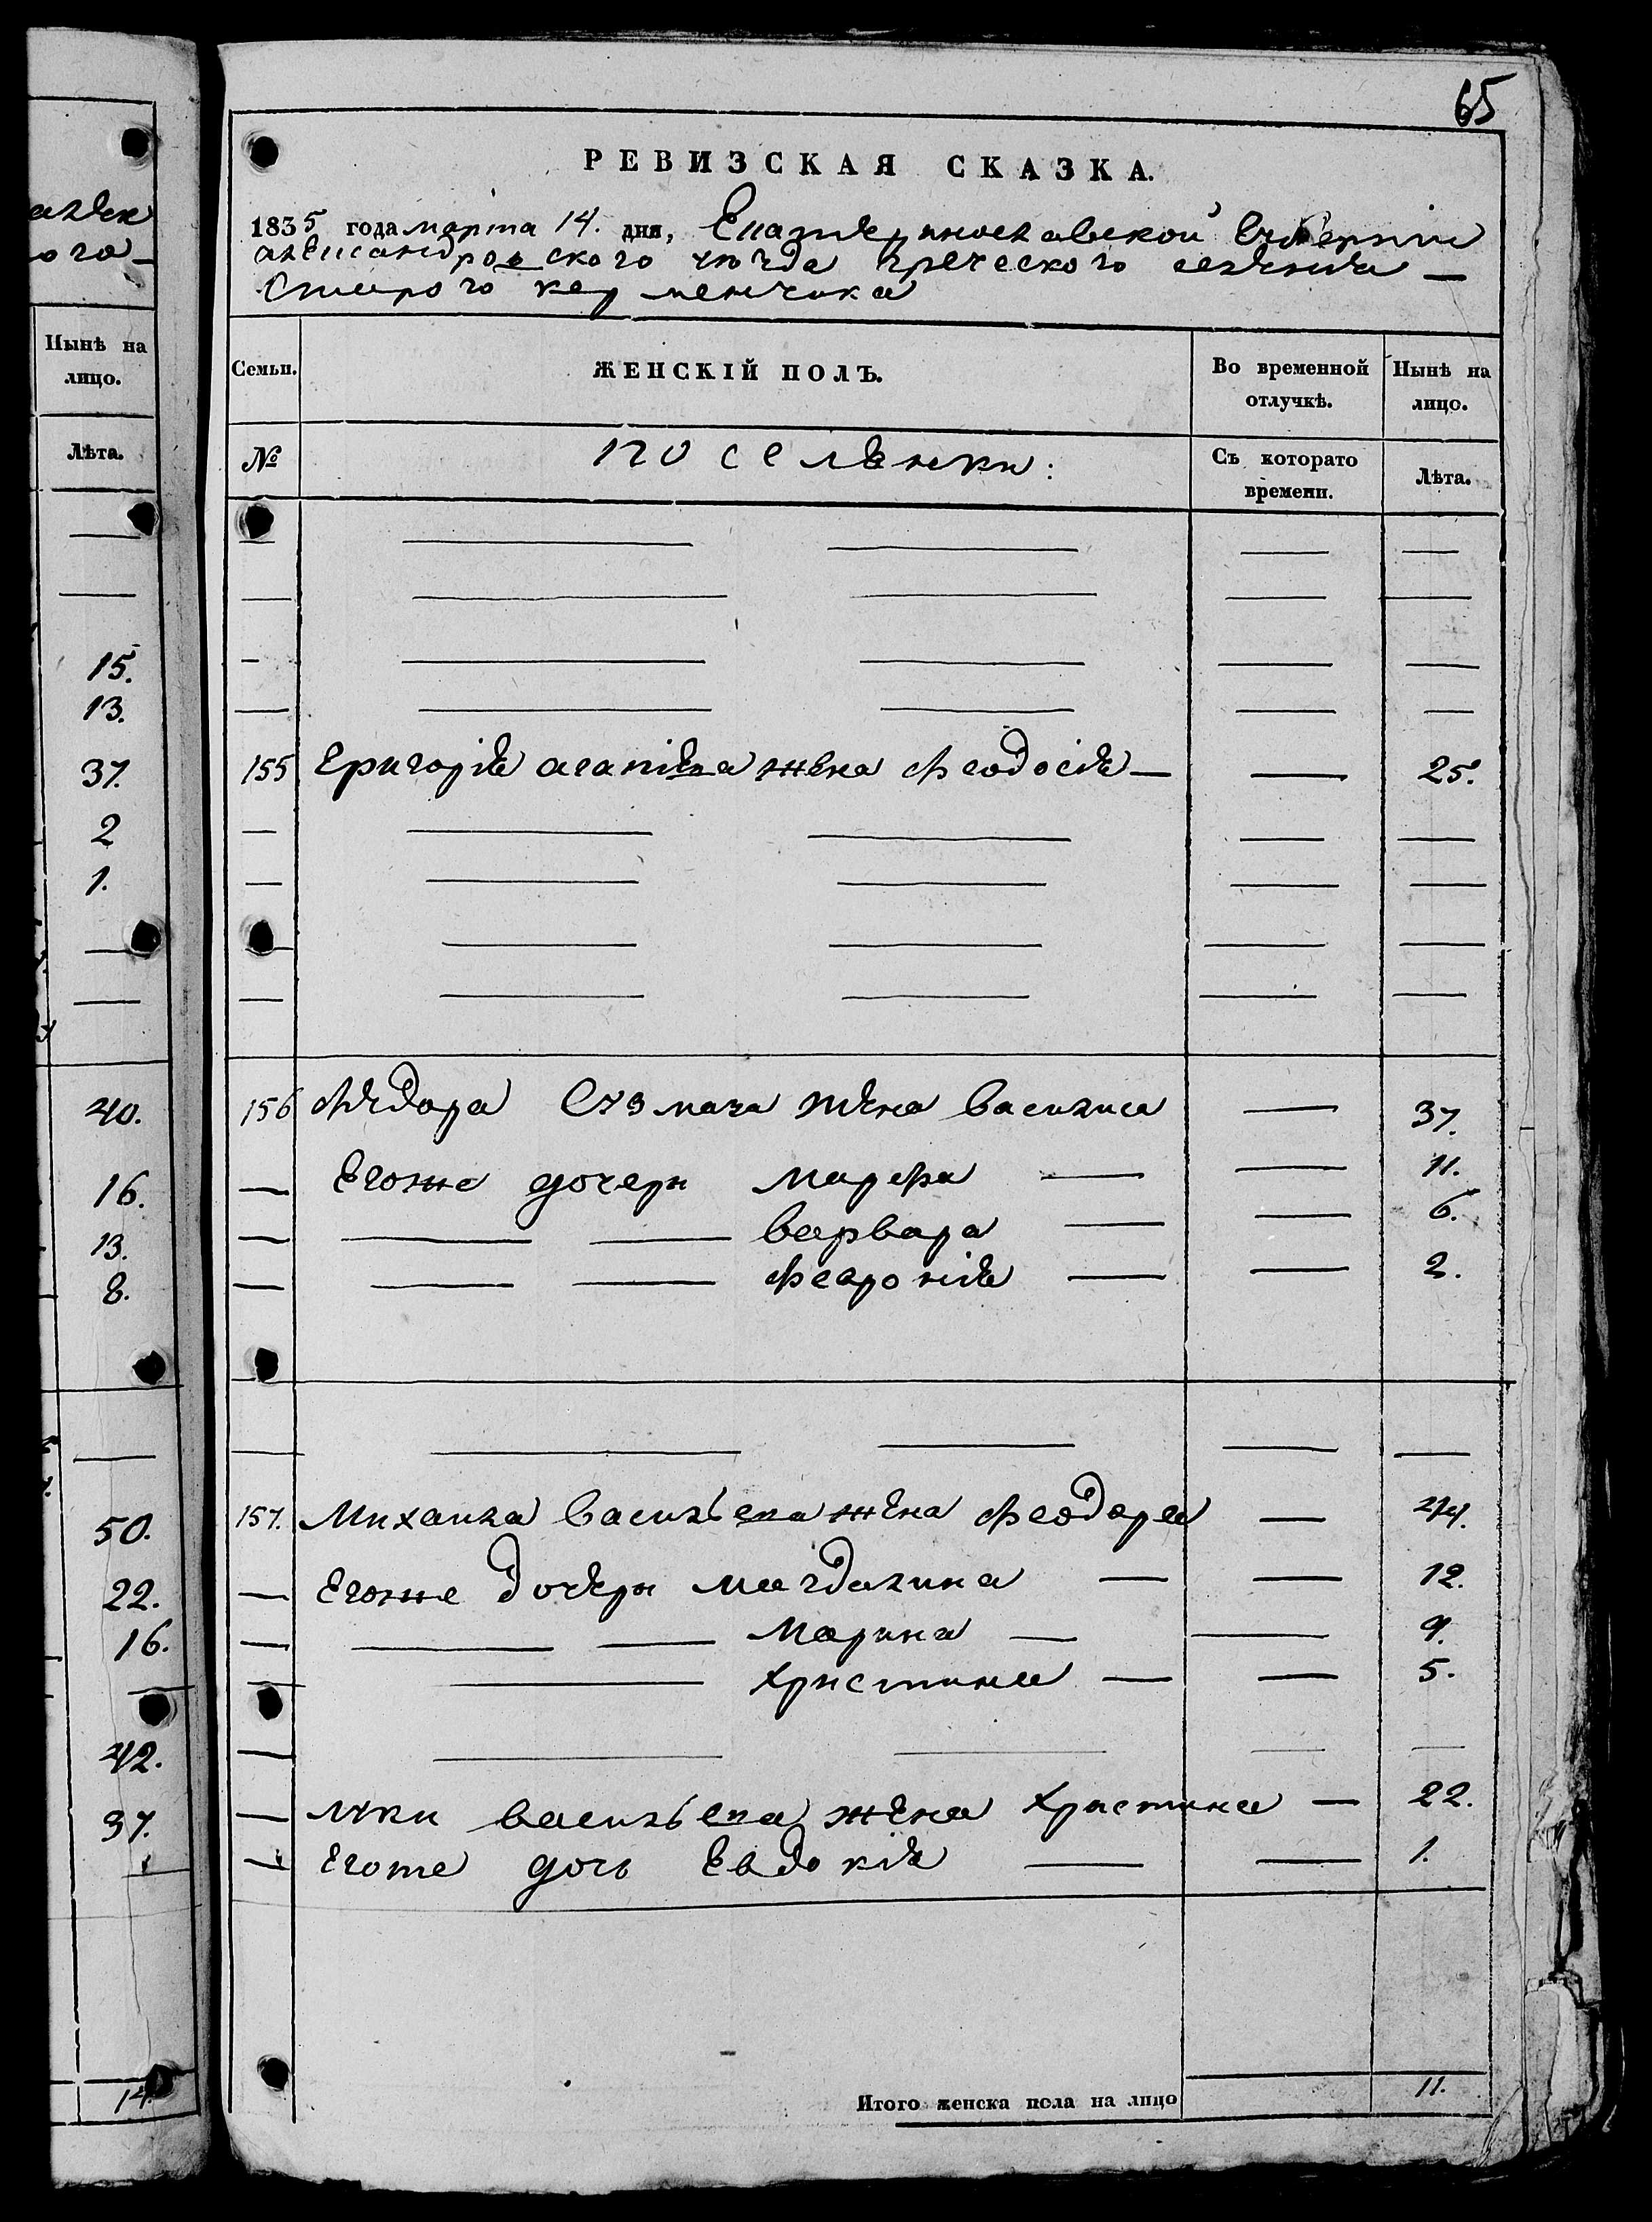 алѣк
ого
Нынѣ на
лицо.
Лѣта.
15.
13.
37.
2
1.
40.
16.
13.
8.
50.
22.
16.
42.
37.
14.
65
РЕВИЗСКАЯ СКАЗКА.
1835 года марта 14. дня, Екатериносла
вской Губерніи
александровского уѣзда греческого селенія —
Старого керменчика
Семьи. ЖЕНСКІЙ ПОЛЪ. Во временной отлучкѣ. Нынѣ на лицо.
№ поселѣнки: Съ которато времени. Лѣта.
155 Григорія жена Феодосія — — 25.
156 Ѳедора жена Василиса — 37.
— Егоже дочери Марфа — — 11.
— — — Варвара — — 6.
— — — Феврониѧ — — 2.
157. Михаила Васильева жена Феодора — 44.
— Егоже дочери Магдалина — — 12.
— — — Марина — — 9.
— — Христина — — 5.
— Луки Васильева жена Христина — 22.
— Егоже дочь Евдокія — — 1.
Итого женска пола на лицо 11.